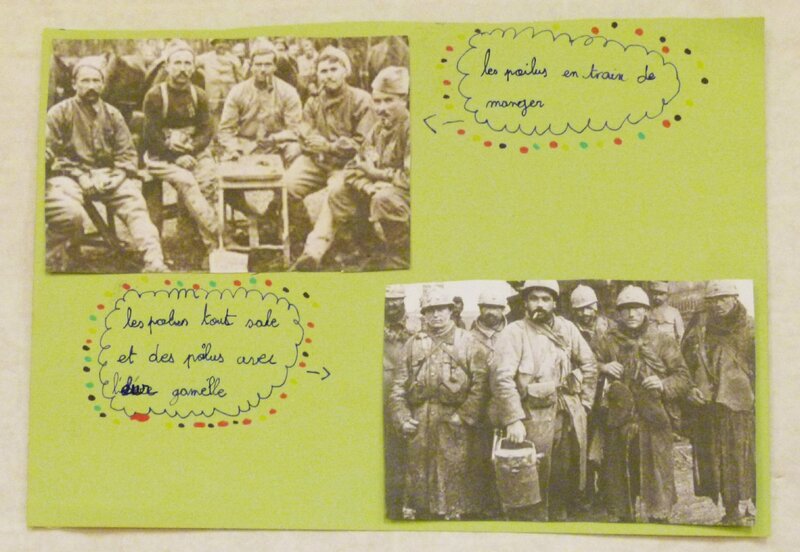 les poilus en train de
manger
les poilus tout sale
et des poilus avec
gamelle